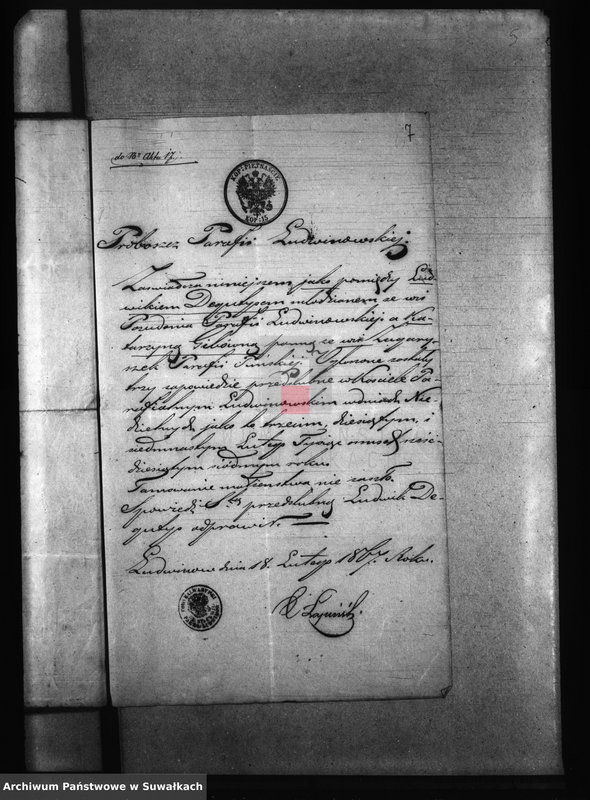 5
7
do Nr Aktu 17
KOP: PIĘTNAŚCIE
KOP: 15
Proboszcz Parafii Ludwinowskiej.
Zaświadcza niniejszem jako pomiędzy Lud
wikiem Degutysem młodzianem ze wsi
Parafii Ludwinowskiej a Ka
tarzyną panną ze wsi
Parafii Puńskiej. Ogłoszone zostały
trzy zapowiedzie przedślubne w kościele Pa-
rafialnym Ludwinowskim w dniach Nie-
dzielnych jako to trzecim, dziesiątym, i
siedmnastym Lutego Tysiąc ośmset sześć-
dziesiątym siódmym roku
Tamowanie małżeństwa nie zaszło.
Spowiedź Stą przedślubną Ludwik De-
gutys odprawił.
Ludwinow dnia 18. Lutego 1867. Roku.
Archiwum Państwowe w Suwałkach